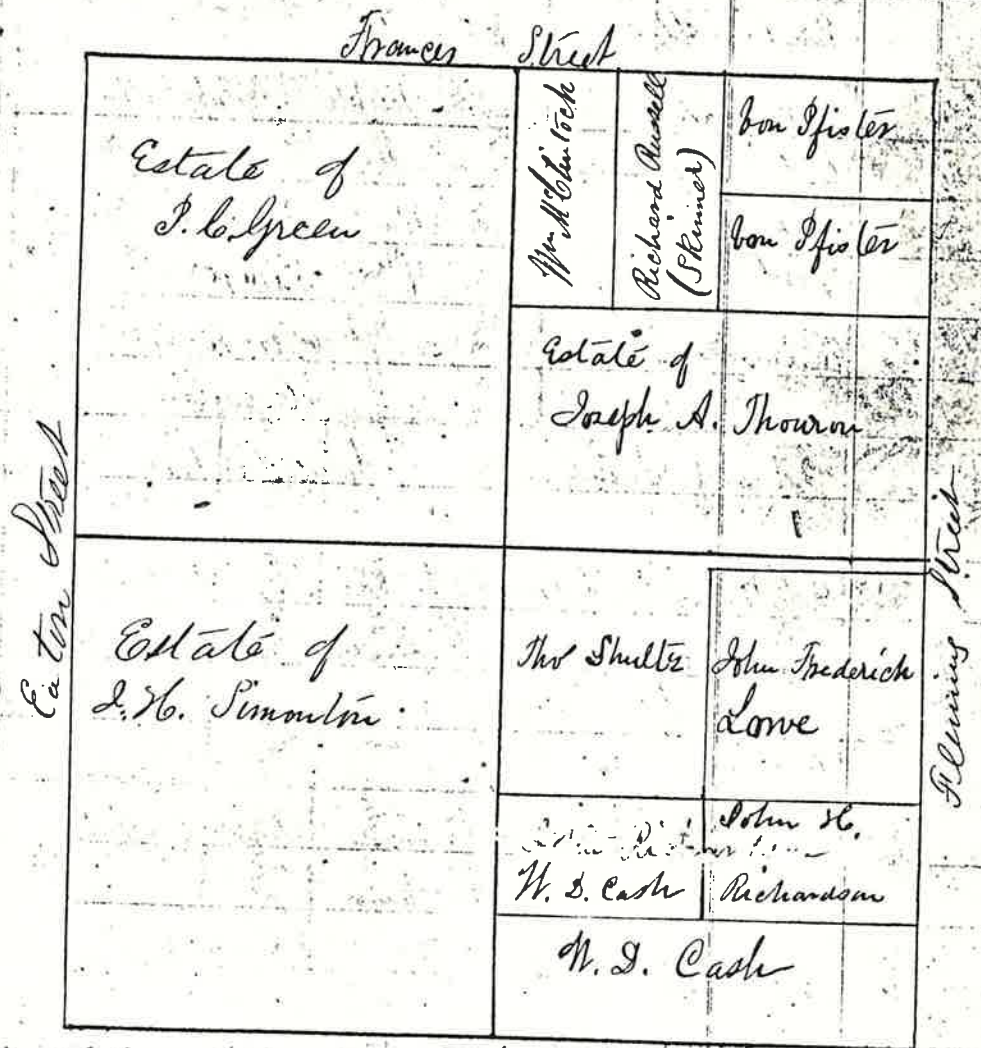 Frances Street
Estate of
P. C. Green
Wm McClintock
Richard Russell
(Skinner)
von Pfister
von Pfister
Estate of
Joseph A. Thouron
Eaton Street
Fleming Street
Estate of
J. H. Simonton
Tho<sup>s</sup> Shultz
John Frederick
Lowe
W. D. Cash
John H.
Richardson
W. D. Cash